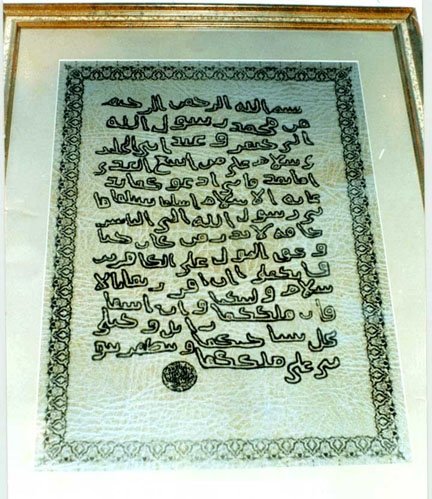 بسم الله الرحمن الرحيم
من محمد رسول الله
الى جيفر و عبد ابنى الجلند
ى سلام على من اتبع الهدى
اما بعد فانى ادعوكما بد
عاية الاسلام اسلما تسلما فا
نى رسول الله الى الناس
كافة لانذر من كان حيا
و يحق القول على الكافرين
و انكما ان اقررتما بالا
سلام وليتكما و ان ابيتما
فان ملككما زايل و خيلى
تحل بساحتكما و تظهر نبو
تى على ملككما